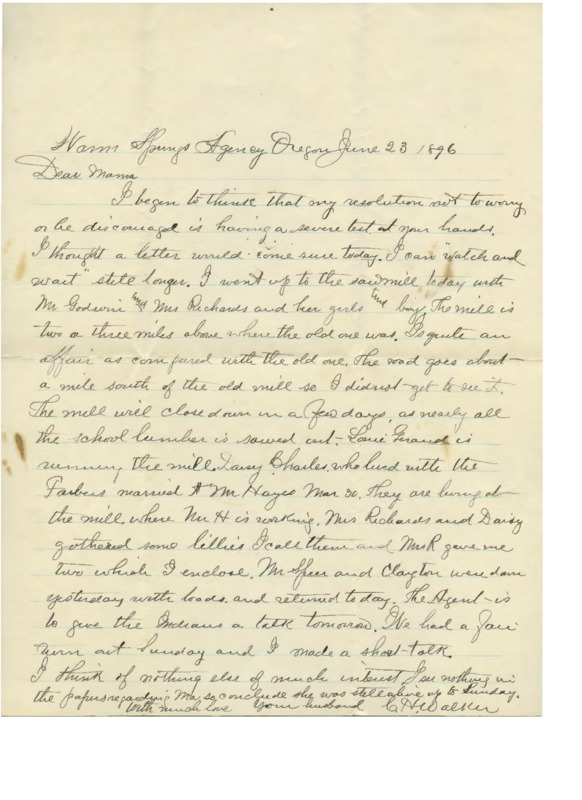 Warm Springs Agency Oregon June 23 1896
Dear Mama
I begin to think that my resolution not to worry
or be discouraged is having a severe test at your hands.
I thought a letter would come sure today. I can "watch and
wait" still longer. I went up to the sawmill today with
Mr Godwin and Mrs Richards and her girls and boy. The mill is
two or three miles above where the old one was. Is quite an
affair as compared with the old one. The road goes about
a mile south of the old mill so I did not get to see it.
The mill will close down in a few days, as nearly all
the school lumber is sawed out - is
running the mill. Daisy Charles, who lived with the
married Mr Hayes Mar 30. They are living at
the mill, where Mr H is working. Mrs Richards and Daisy
gathered some lillies I call them and Mrs R gave me
two which I enclose. Mr Speer and Clayton were down
yesterday with loads, and returned today. The Agent is
to give the Indians a talk tomorrow. We had a fair
turn out Sunday and I made a short talk.
I think of nothing else of much interest I see nothing in
the papers regarding Ma, so conclude she was still alive up to Sunday.
With much love Your husband C H. Walker